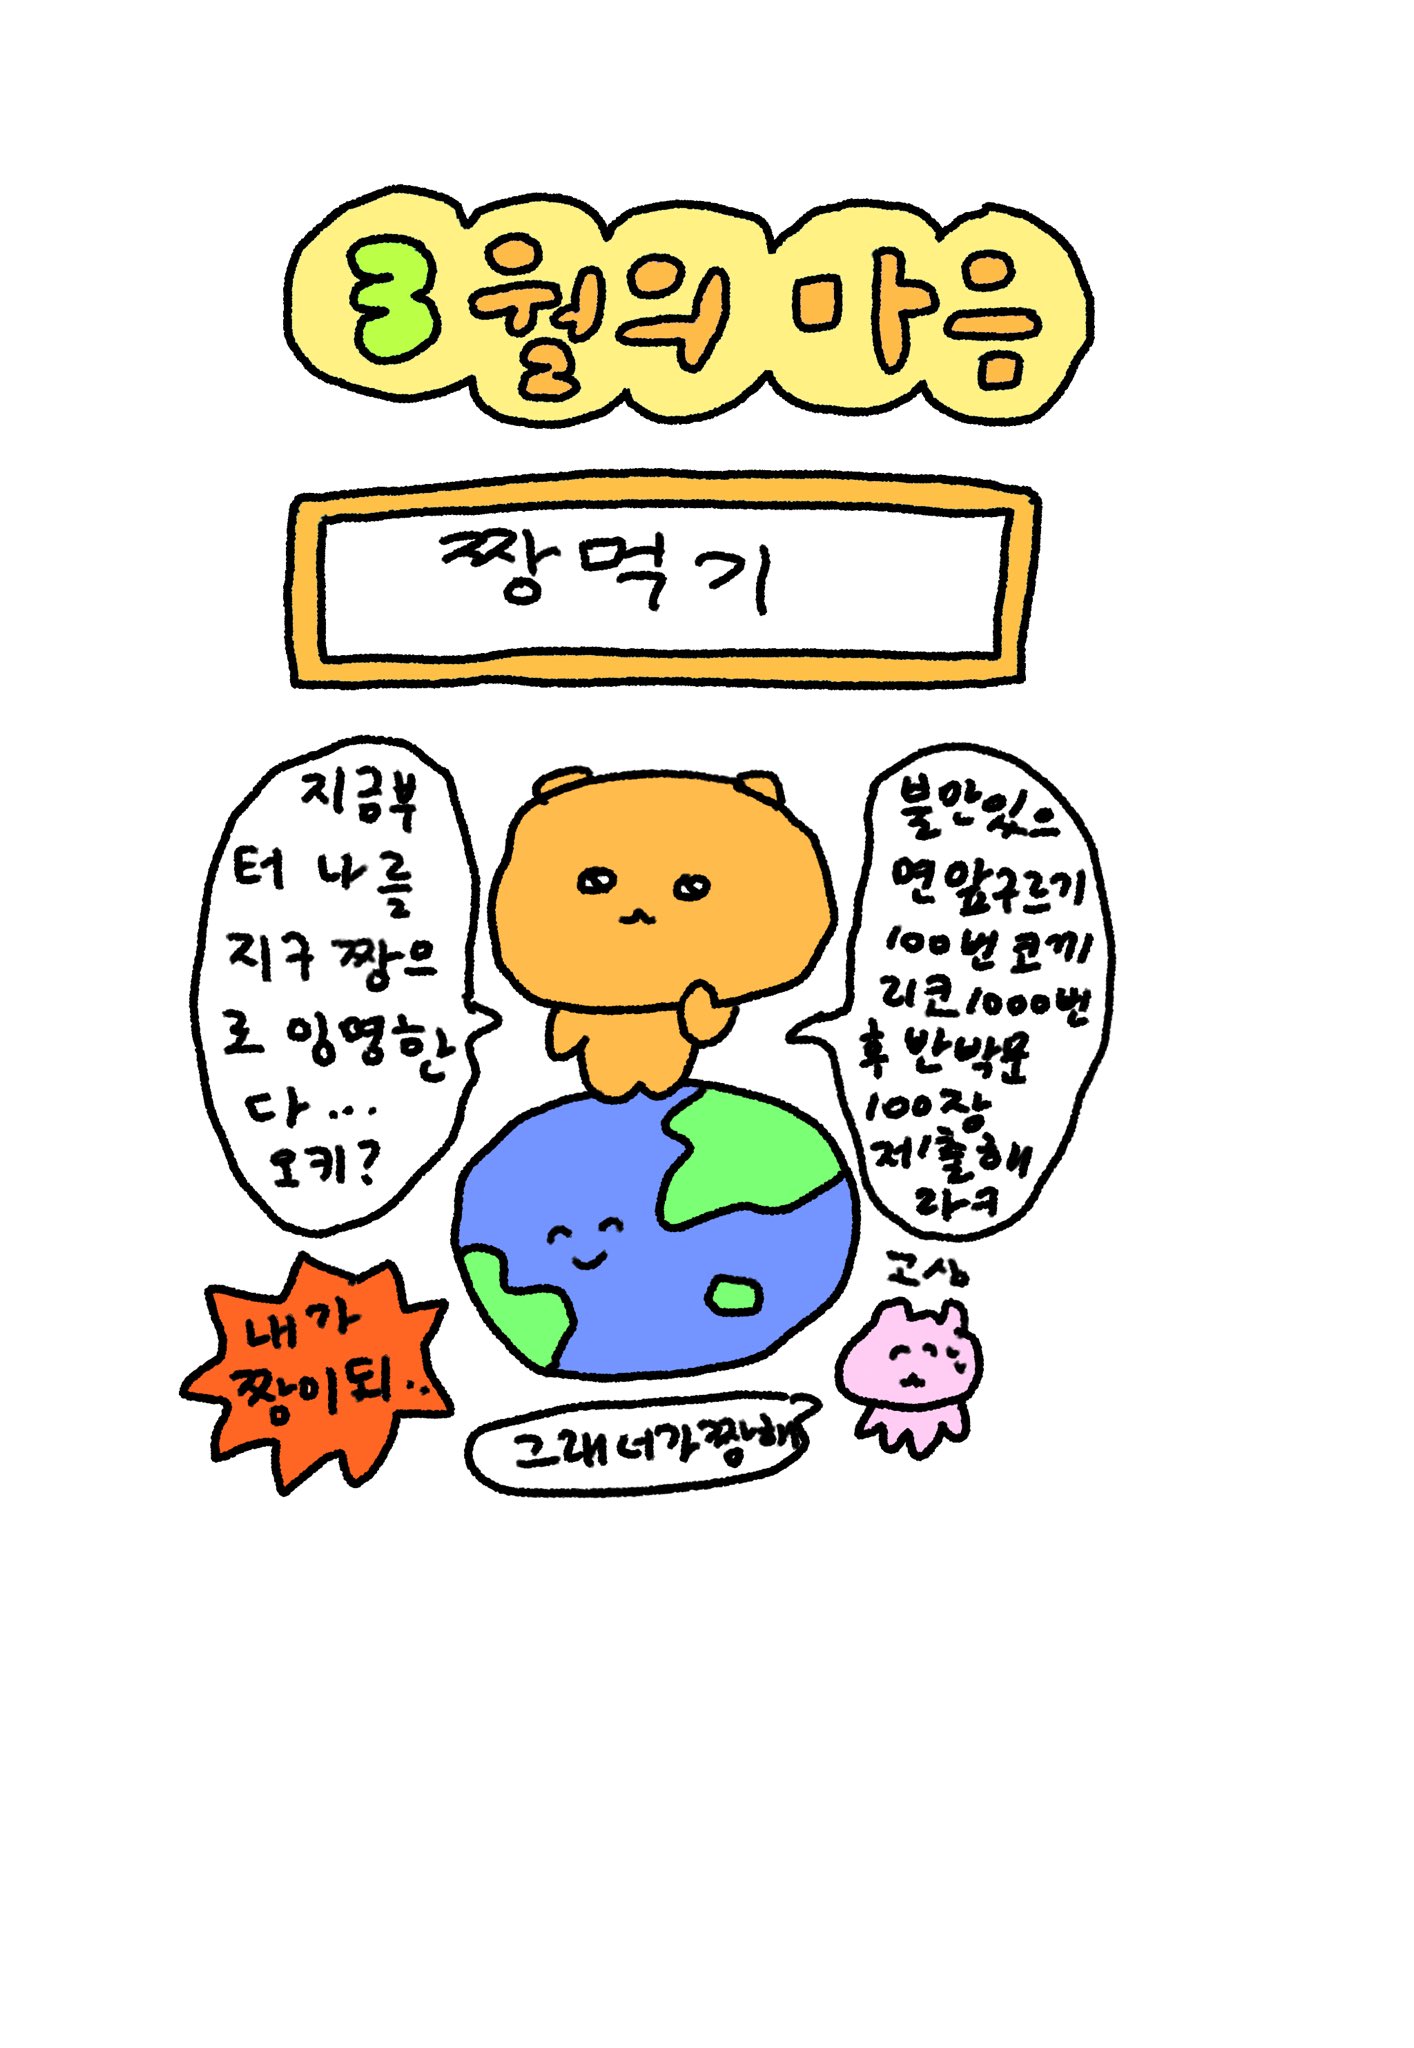 3월의 마음
짱먹기
지금부
터 나를
지구 짱으
로 임명한
다...
오키?
불만있으
면 앞구르기
100번 코끼
리코 1000번
후 반박문
100장
제출해
라ㅋ
내가
짱이되..
고심
그래 너가짱해